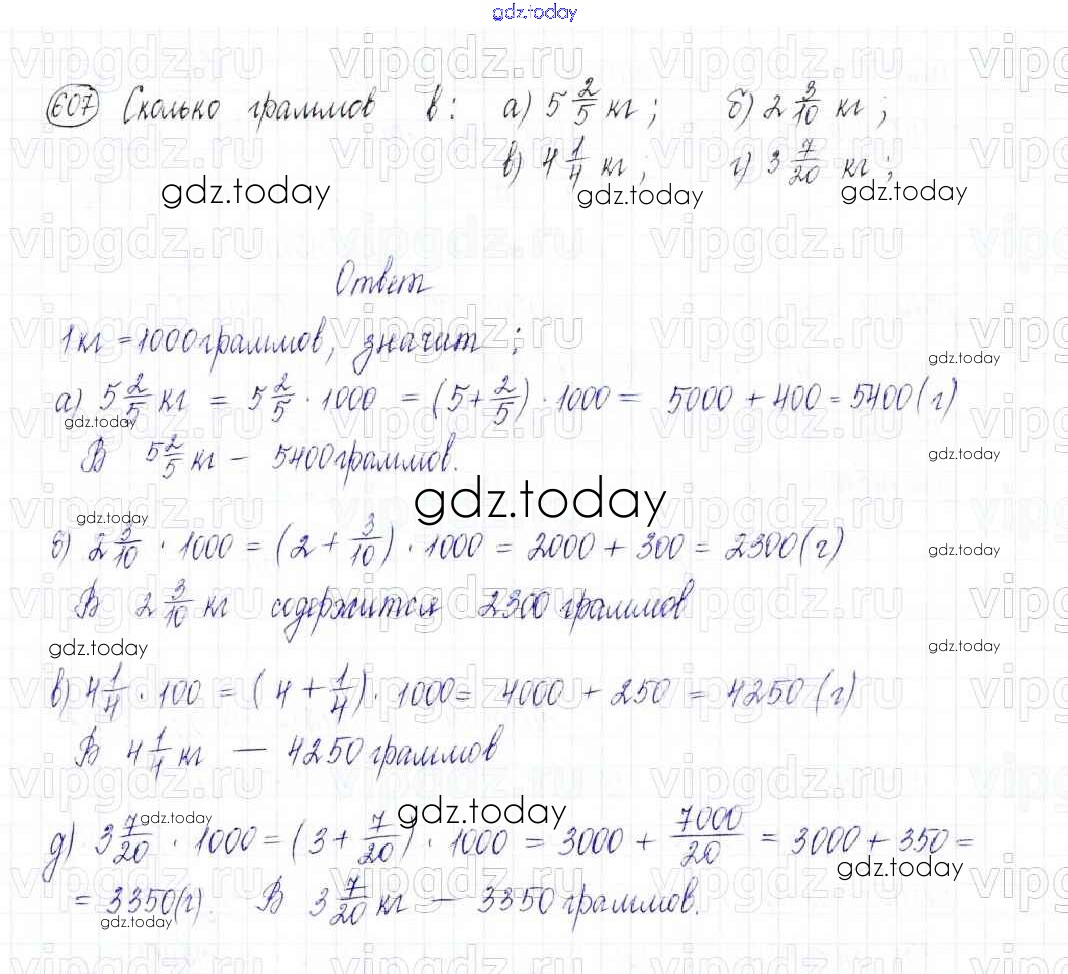 gdz.today
607 Сколько граммов в: а) 5 2/5 кг; б) 2 3/10 кг;
в) 4 1/4 кг; г) 3 7/20 кг;
gdz.today gdz.today gdz.today
Ответ
1 кг = 1000 граммов, значит:
gdz.today
а) 5 2/5 кг = 5 2/5 · 1000 = (5 + 2/5) · 1000 = 5000 + 400 = 5400 (г)
gdz.today
В 5 2/5 кг – 5400 граммов.
gdz.today
gdz.today
gdz.today
б) 2 3/10 · 1000 = (2 + 3/10) · 1000 = 2000 + 300 = 2300 (г)
gdz.today
В 2 3/10 кг содержится 2300 граммов
gdz.today gdz.today
в) 4 1/4 · 100 = (4 + 1/4) · 1000 = 4000 + 250 = 4250 (г)
В 4 1/4 кг — 4250 граммов
gdz.today
д) 3 7/20 · 1000 = (3 + 7/20) · 1000 = 3000 + 7000/20 = 3000 + 350 =
gdz.today
= 3350 (г). В 3 7/20 кг — 3350 граммов.
gdz.today
vipgdz.ru